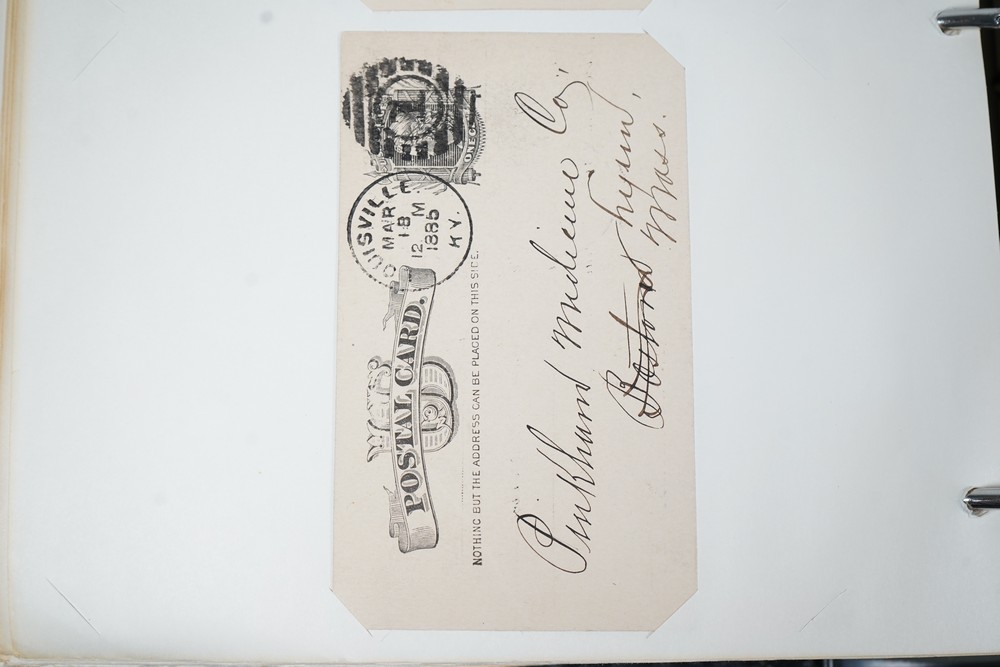 POSTAL CARD.
NOTHING BUT THE ADDRESS CAN BE PLACED ON THIS SIDE.
LOUISVILLE
MAR
18
12 M
1885
KY.
ONE C
Pinkhund Medicine Coy
Boston Lynn,
Mass.